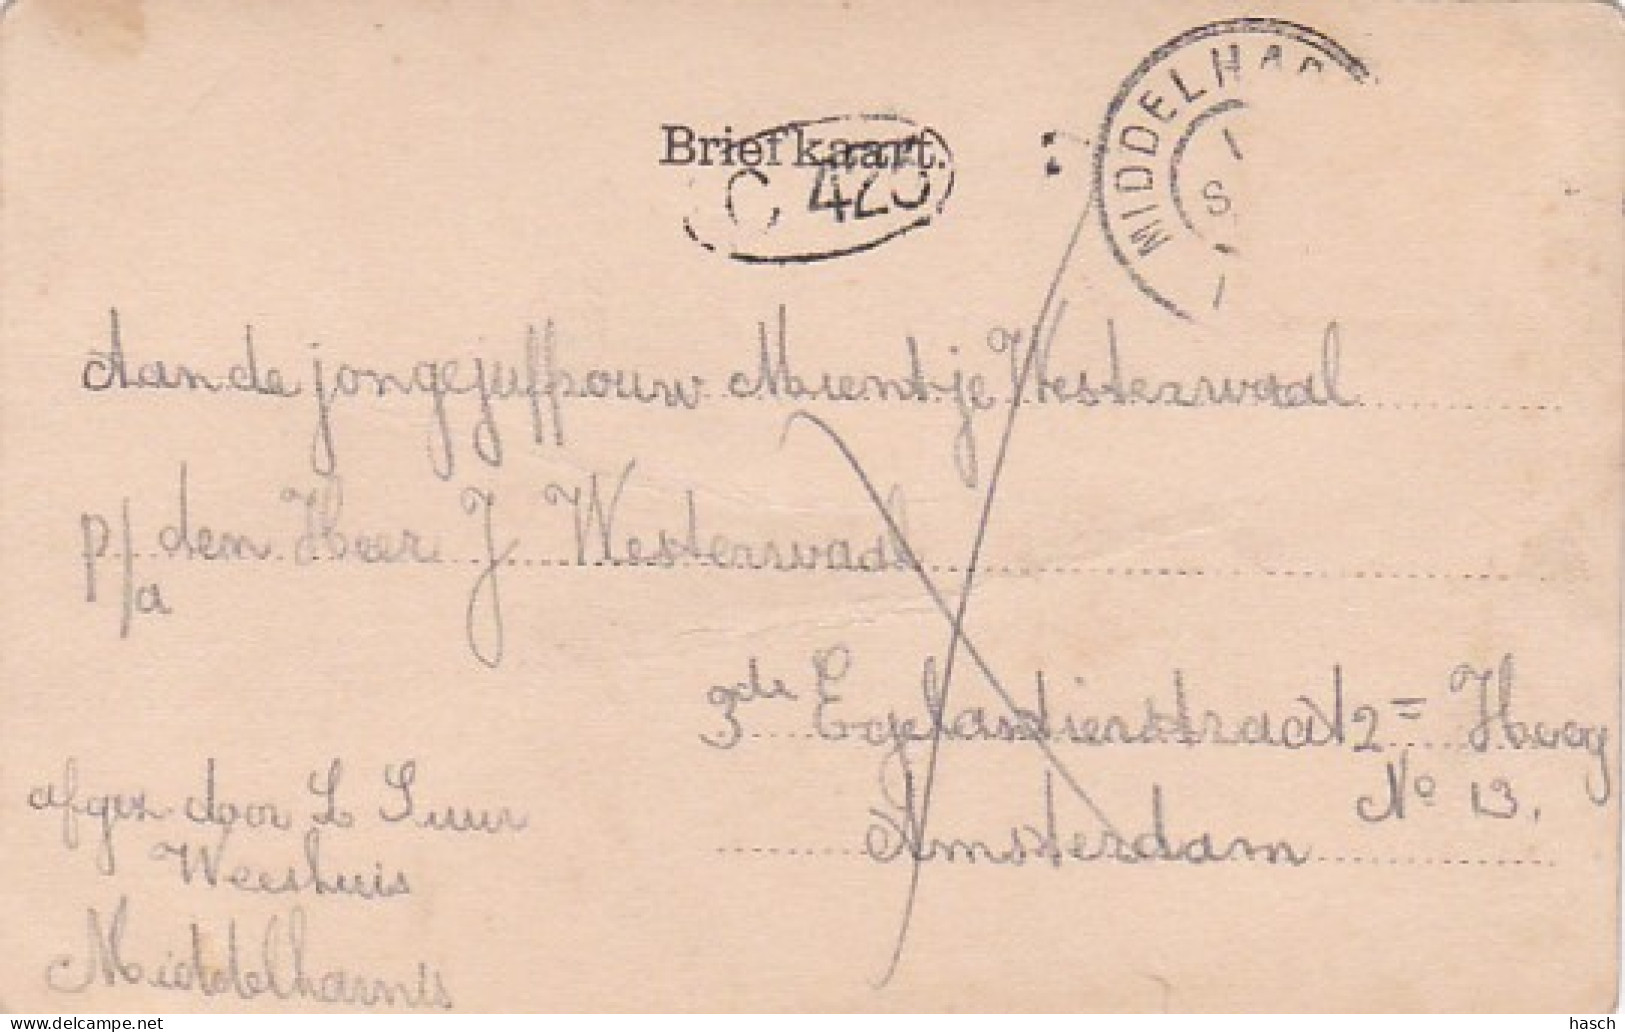 Briefkaart.
C 425
MIDDELHAR
S
Aan de jongejuffrouw Mientje Westerwaal
p/a den Heer J Westerwaal
3de Egelantierstraat 2= Hoog
No 13.
Amsterdam
afgez door L Suur
Weeshuis
Middelharnis
hasch Delcampe.net